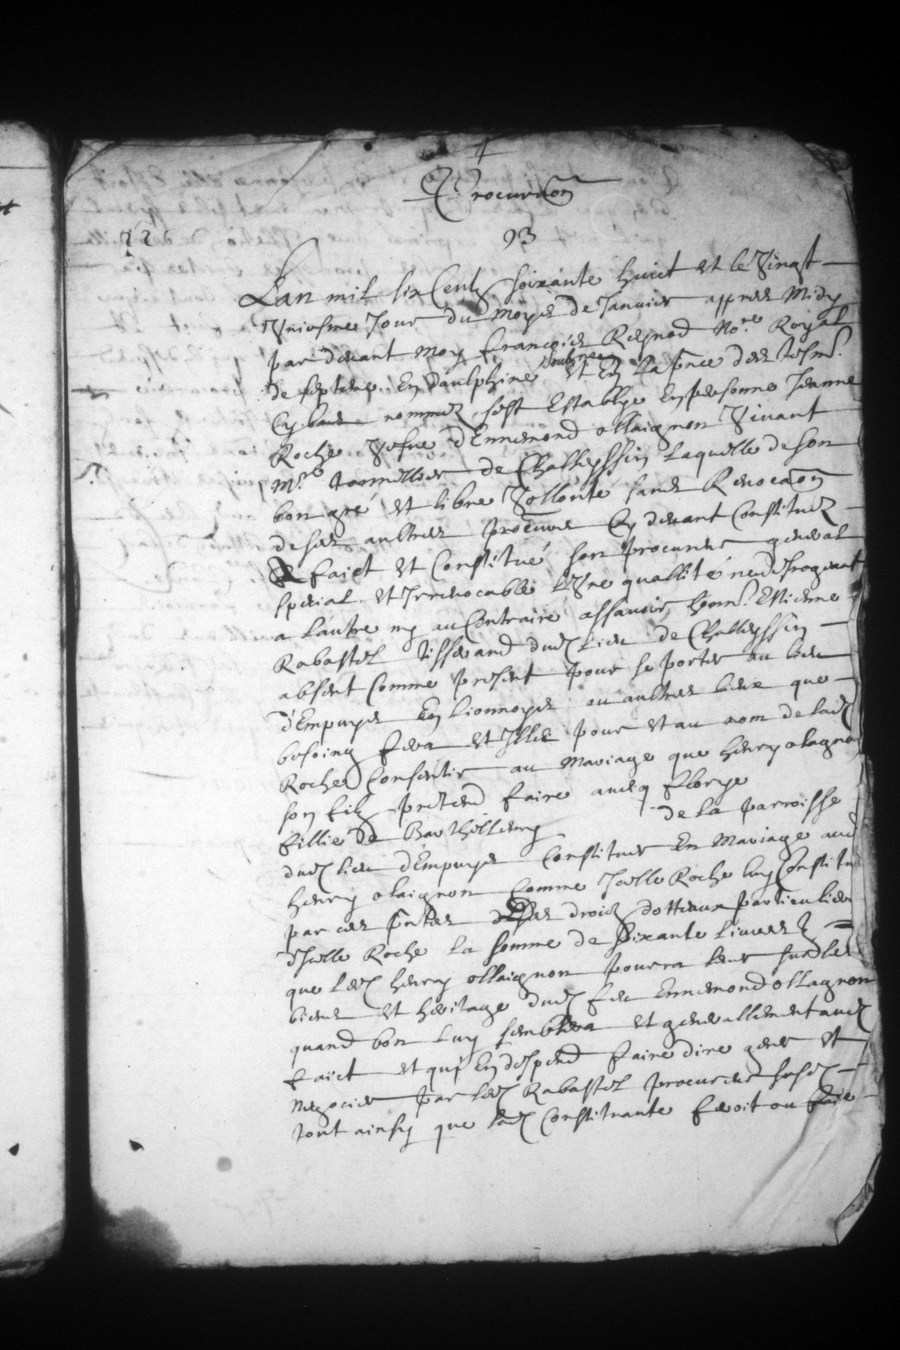 Procur[ati]on
93
L'an mil six Centz soixante huict et le Vingt
Uniesme Jour du moys de Janvier appres Midy
par devant moy francois Reynod No.re Royal
de septeme En dauphine soubzne et En la p[rese]nce des tesm.
Cy bas nommez sest Establye En personne Jeanne
Roche vefve d'Ennemond ollaignon vivant
M.re tornellier de Chalheyssin Laquelle de son
bon gré et libre vollonté sans Revoca[ti]on
de ses aultres procure Cy devant Constituez
A faict et Constitué son procureur general
special et Irrevocable L'Une quallité ne desrogeant
a L'autre ny au Contraire assavoir honn. Estienne
Rabastel tisserand dud lieu de Chalheyssin
absent Comme present pour se porter au lieu
d'Empuyes En lionnoyes ou aultres lieux que
besoing sera et Illec pour et au nom de lad
Roche Consentir au Mariage que henry olagnon
son filz pretend faire avecq florye
fillie de Barthellemy de la parroisse
dud lieu d'Empuyes Constituer En Mariage aud
henry olaignon Comme Icelle Roche luy Constitue
par ces p[rese]ntes de ses droictz dottaux particuliers
d'Icelle Roche La somme de soixante livres
que led henry ollaignon pourra lever sur les
biens et heritage dud feu Ennemond ollagnon
quand bon luy semblera et generallement aud
faict et quy En despend faire dire gerer et
negocier par led Rabastel procureur susd
tout ainsy que lad Constituante feroit ou faire